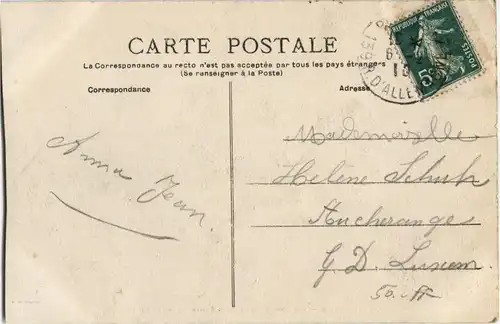 CARTE POSTALE
La Correspondance au recto n'est pas acceptée par tous les pays étrangers
(Se renseigner à la Poste)
Correspondance
Adresse
REPUBLIQUE FRANÇAISE
POSTES
5c
139 R. D'ALLE
Anna Jean.
Mademoiselle
Helène Schuh
Aucherange
G. D. Luxem.
50.